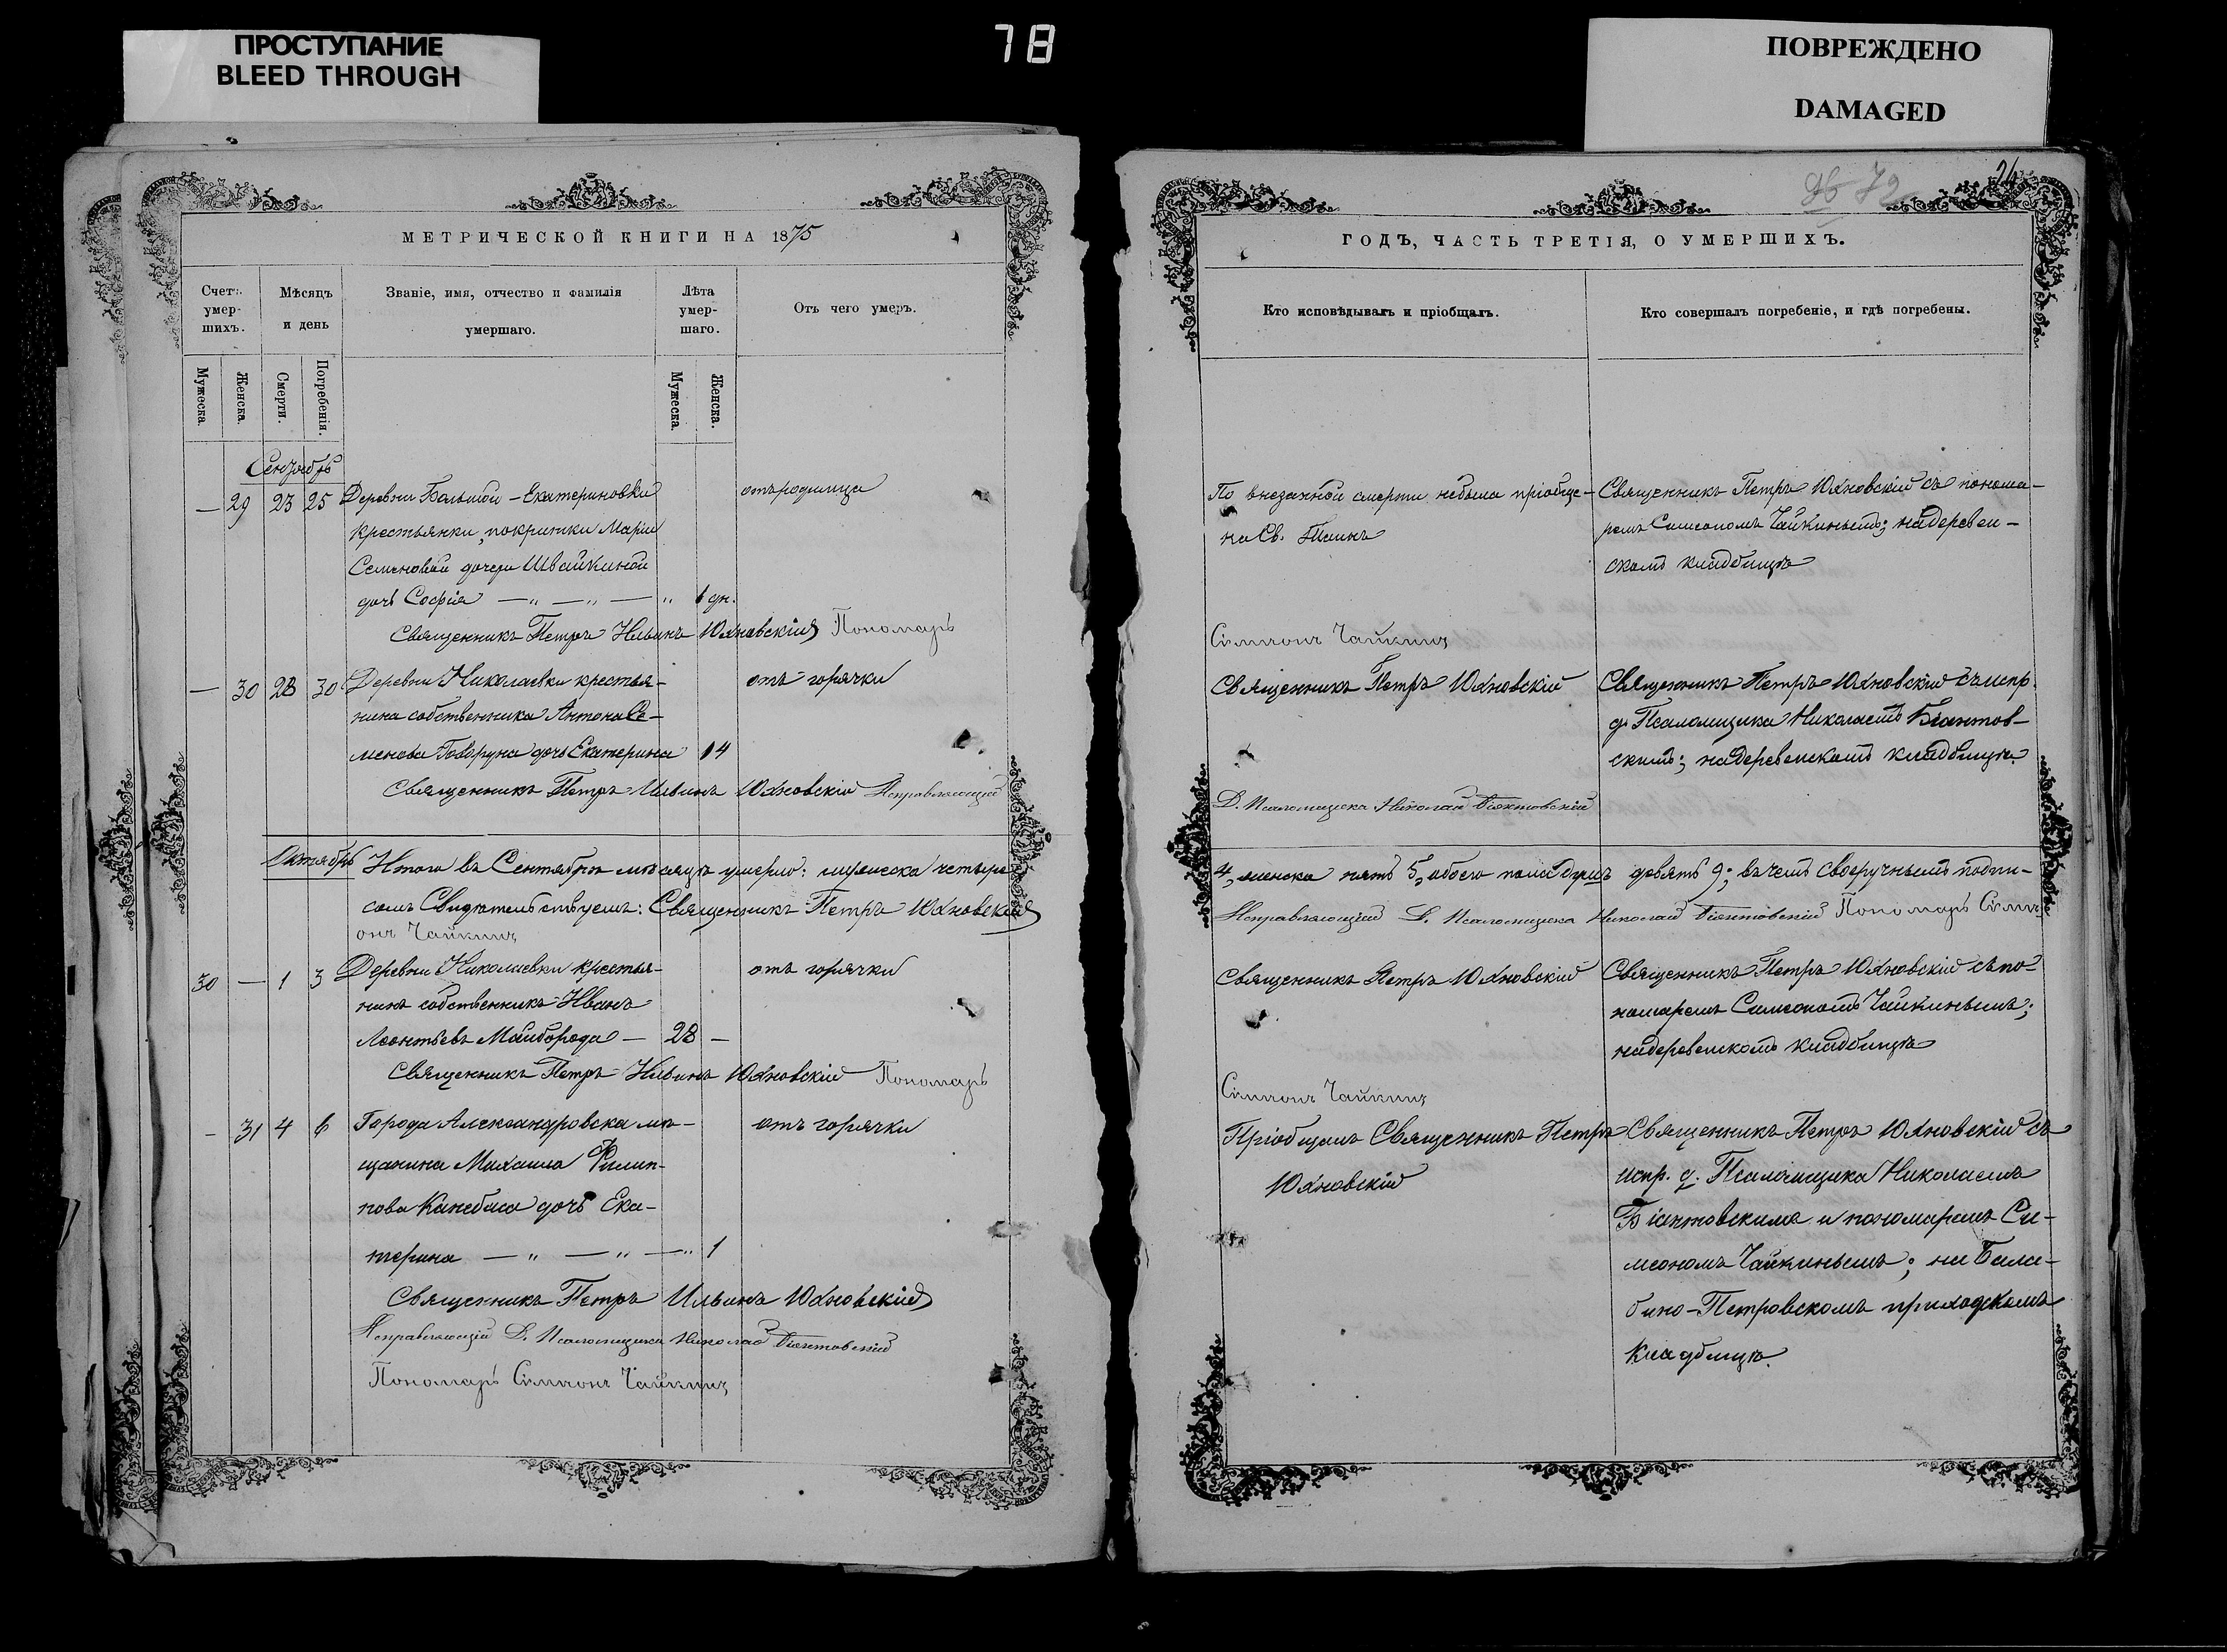 ПРОСТУПАНИЕ
BLEED THROUGH
78
ПОВРЕЖДЕНО
DAMAGED
МЕТРИЧЕСКОЙ КНИГИ НА 1875
Счетъ умер-шихъ.
Мѣсяцъ и день
Званіе, имя, отчество и фамилія умершаго.
Лѣта умер-шаго.
Отъ чего умеръ.
Мужеска.
Женска.
Смерти.
Погребенія.
Мужеска.
Женска.
Сентябрь
— 29 23 25 Деревни Большой-Екатериновки
отъ родимца
крестьянки, покритки Маріи
Семеновой дочери Швайкиной
дочь София — „ — „ — „ 1 дн.
Священникъ Петръ Ильинъ Юхновскій Пономарь
— 30 28 30 Деревни Николаевки крестья-
отъ горячки
нина собственника Антона Се-
менова Говоруна дочь Екатерина 14
Священникъ Петръ Ильинъ Юхновскій Исправляющій
Октябрь
Итого въ Сентябрѣ мѣсяцѣ умерло: мужеска четыре
сомъ Свидѣтельствуемъ: Священникъ Петръ Юхновскій
онъ Чайкинъ
30 — 1 3 Деревни Николаевки крестья-
отъ горячки
нинъ собственникъ Иванъ
Леонтьевъ Майборода — 28 —
Священникъ Петръ Ильинъ Юхновскій Пономарь
— 31 4 6 Города Александровска мѣ-
отъ горячки
щанина Михаила Филип-
пова дочь Ека-
терина — „ — „ — „ 1
Священникъ Петръ Ильинъ Юхновскій
Исправляющій Д. Псаломщика Николай Біянтовскій
Пономарь Симеонъ Чайкинъ
26
72
ГОДЪ, ЧАСТЬ ТРЕТІЯ, О УМЕРШИХЪ.
Кто исповѣдывалъ и пріобщалъ.
Кто совершалъ погребеніе, и гдѣ погребены.
По внезапной смерти небыла пріобще-
на Св. Таинъ
Священникъ Петръ Юхновскій съ понома-
ремъ Симеономъ Чайкинымъ; на деревен-
скомъ кладбищѣ
Симеонъ Чайкинъ
Священникъ Петръ Юхновскій
Священникъ Петръ Юхновскій съ испр.
д. Псаломщика Николаемъ Біянтов-
скимъ; на деревенскомъ кладбищѣ.
Д. Псаломщика Николай Біянтовскій
4, женска пять 5, обоего пола душъ девять 9; въ чемъ своеручнымъ подпи-
Исправляющій Д. Псаломщика Николай Біянтовскій Пономарь Симе
Священникъ Петръ Юхновскій
Священникъ Петръ Юхновскій съ по-
номаремъ Симеономъ Чайкинымъ;
на деревенскомъ кладбищѣ
Симеонъ Чайкинъ
Пріобщалъ Священникъ Петръ
Юхновскій
Священникъ Петръ Юхновскій съ
испр. д. Псаломщика Николаемъ
Біянтовскимъ и пономаремъ Си-
меономъ Чайкинымъ; на Бала-
бино-Петровскомъ приходскомъ
кладбищѣ.